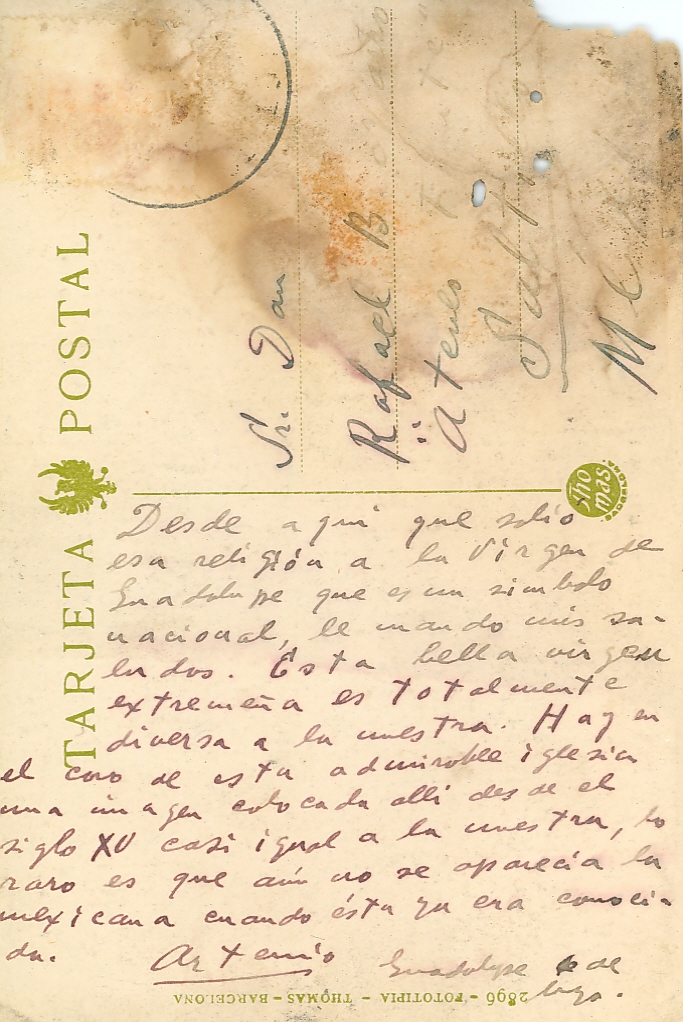 TARJETA POSTAL
Sr. Don
Rafael B
Ateneo
Salt
Mé
Thomas
BARCELONA
Desde aqui que salió
esa religión a la Virgen de
Guadalupe que es un simbolo
nacional, le mando mis sa-
ludos. Esta bella virgen
extremeña es totalmente
diversa a la nuestra. Hay en
el coro de esta admirable iglesia
una imagen colocada alli desde el
siglo XV casi igual a la nuestra, lo
raro es que aún no se aparecía la
mexicana cuando ésta ya era conoci-
da. Artemio
Guadalupe 6 de
2896 - FOTOTIPIA - THOMAS - BARCELONA